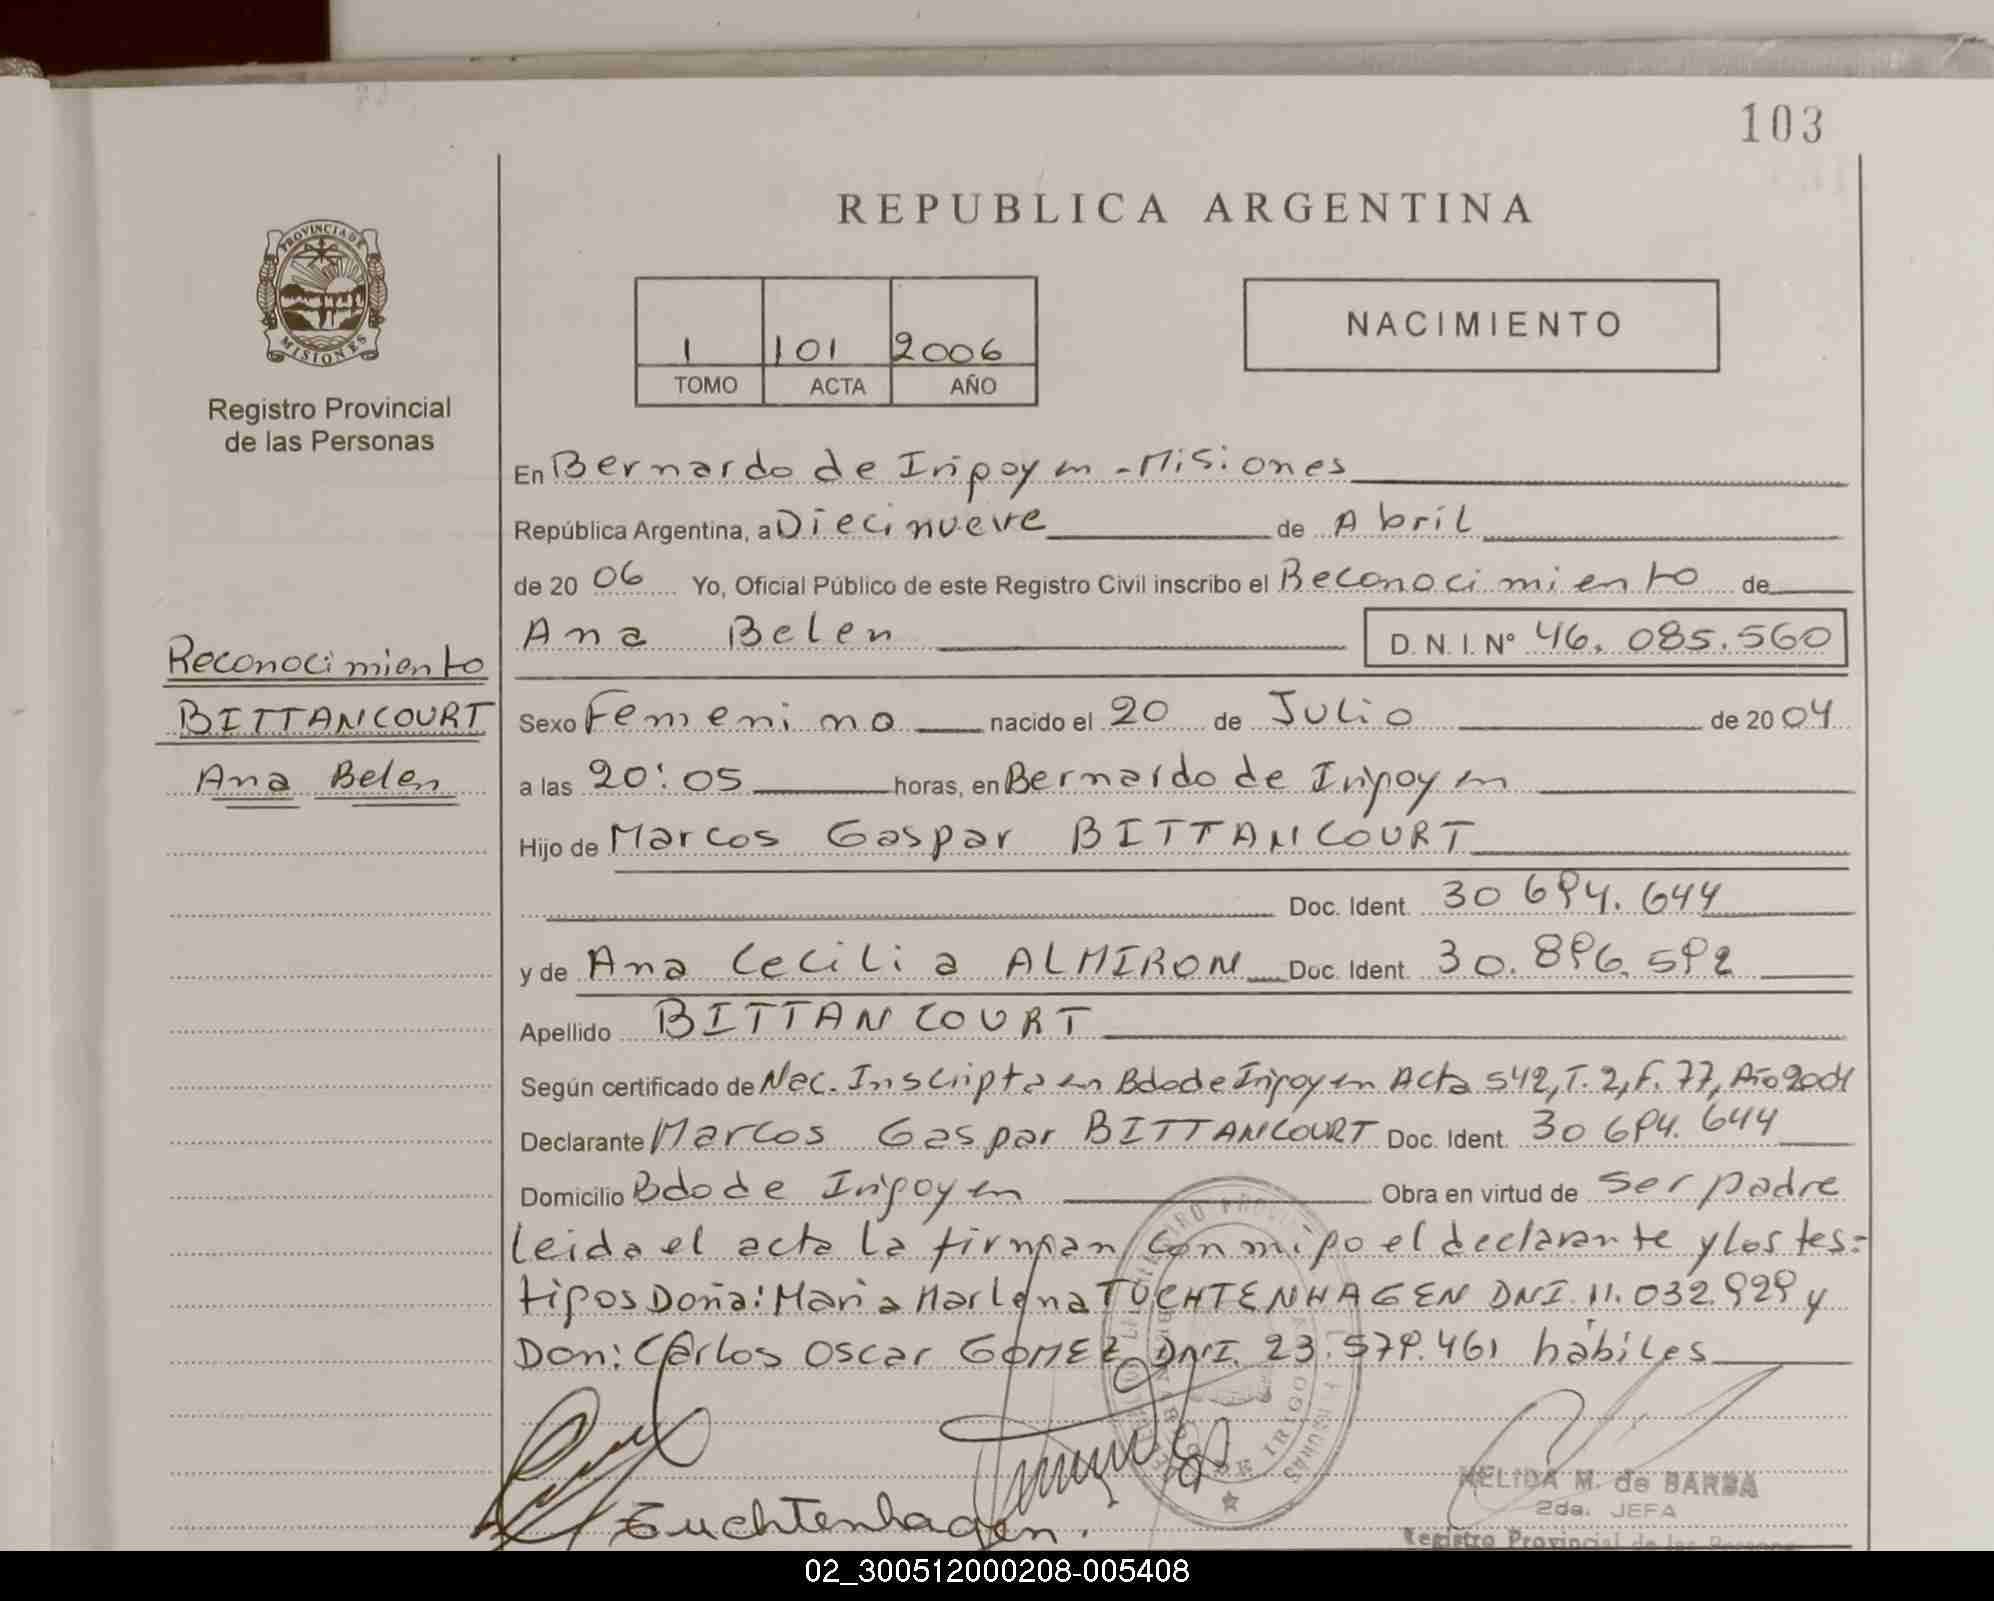 103
REPUBLICA ARGENTINA
PROVINCIA DE
MISIONES
Registro Provincial
de las Personas
1 101 2006
TOMO ACTA AÑO
NACIMIENTO
En Bernardo de Irigoyen - Misiones
República Argentina, a Diecinueve de Abril
de 2006 Yo, Oficial Público de este Registro Civil inscribo el Reconocimiento de
Ana Belen D. N. I. Nº 46.085.560
Reconocimiento
BITTANCOURT
Ana Belen
Sexo Femenino nacido el 20 de Julio de 2004
a las 20:05 horas, en Bernardo de Irigoyen
Hijo de Marcos Gaspar BITTANCOURT
Doc. Ident. 30 694.644
y de Ana Cecilia ALMIRON Doc. Ident. 30.896.592
Apellido BITTANCOURT
Según certificado de Nac. Inscripta en Bdo de Irigoyen Acta 542, T. 2, F. 77, Año 2004
Declarante Marcos Gaspar BITTANCOURT Doc. Ident. 30 694.644
Domicilio Bdo de Irigoyen Obra en virtud de ser padre
leida el acta la firman conmigo el declarante y los tes=
tigos Doña: Maria Marlena TUCHTENHAGEN DNI. 11.032.929 y
Don: Carlos Oscar GOMEZ DNI. 23.579.461 hábiles
Tuchtenhagen.
NELIDA M. de BARBA
2da. JEFA
Registro Provincial de las Personas
02_300512000208-005408